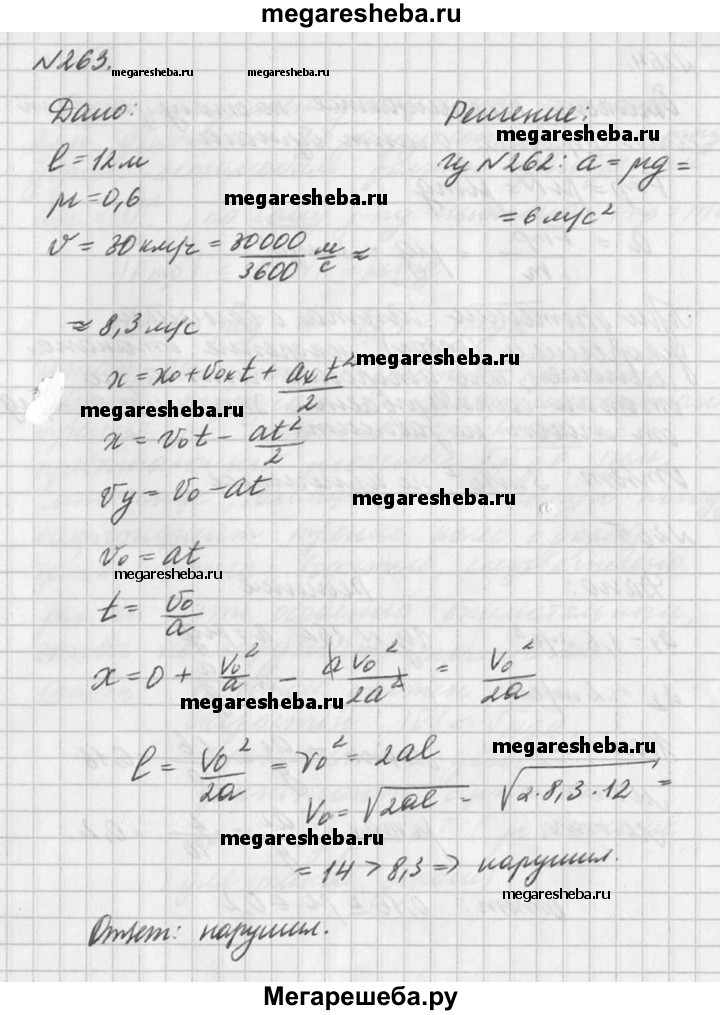 megaresheba.ru
№263. megaresheba.ru megaresheba.ru
Дано: Решение:
megaresheba.ru
l = 12 м
из №262: a = μg =
μ = 0,6 megaresheba.ru
= 6 м/с²
v = 30 км/ч = 30000/3600 м/с ≈
≈ 8,3 м/с
x = x₀ + v₀ₓt + aₓt²/2 megaresheba.ru
megaresheba.ru
x = v₀t − at²/2
vy = v₀ − at megaresheba.ru
v₀ = at
megaresheba.ru
t = v₀/a
x = 0 + v₀²/a − av₀²/2a² = v₀²/2a
megaresheba.ru
l = v₀²/2a = v₀² = 2al megaresheba.ru
v₀ = √2al = √2·8,3·12 =
megaresheba.ru
= 14 > 8,3 ⇒ нарушил.
megaresheba.ru
Ответ: нарушил.
Мегарешеба.ру